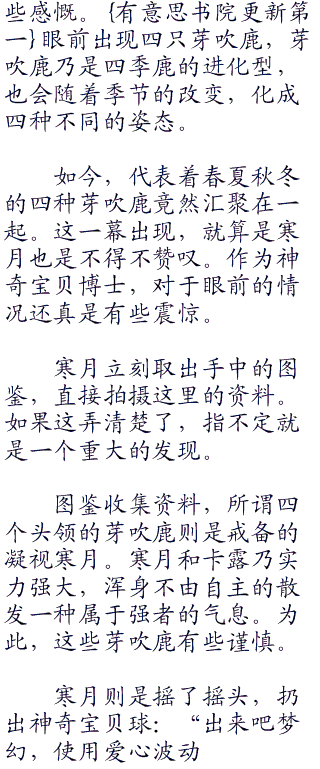 些感慨。{有意思书院更新第
一}眼前出现四只芽吹鹿，芽
吹鹿乃是四季鹿的进化型，
也会随着季节的改变，化成
四种不同的姿态。
如今，代表着春夏秋冬
的四种芽吹鹿竟然汇聚在一
起。这一幕出现，就算是寒
月也是不得不赞叹。作为神
奇宝贝博士，对于眼前的情
况还真是有些震惊。
寒月立刻取出手中的图
鉴，直接拍摄这里的资料。
如果这弄清楚了，指不定就
是一个重大的发现。
图鉴收集资料，所谓四
个头领的芽吹鹿则是戒备的
凝视寒月。寒月和卡露乃实
力强大，浑身不由自主的散
发一种属于强者的气息。为
此，这些芽吹鹿有些谨慎。
寒月则是摇了摇头，扔
出神奇宝贝球：“出来吧梦
幻，使用爱心波动